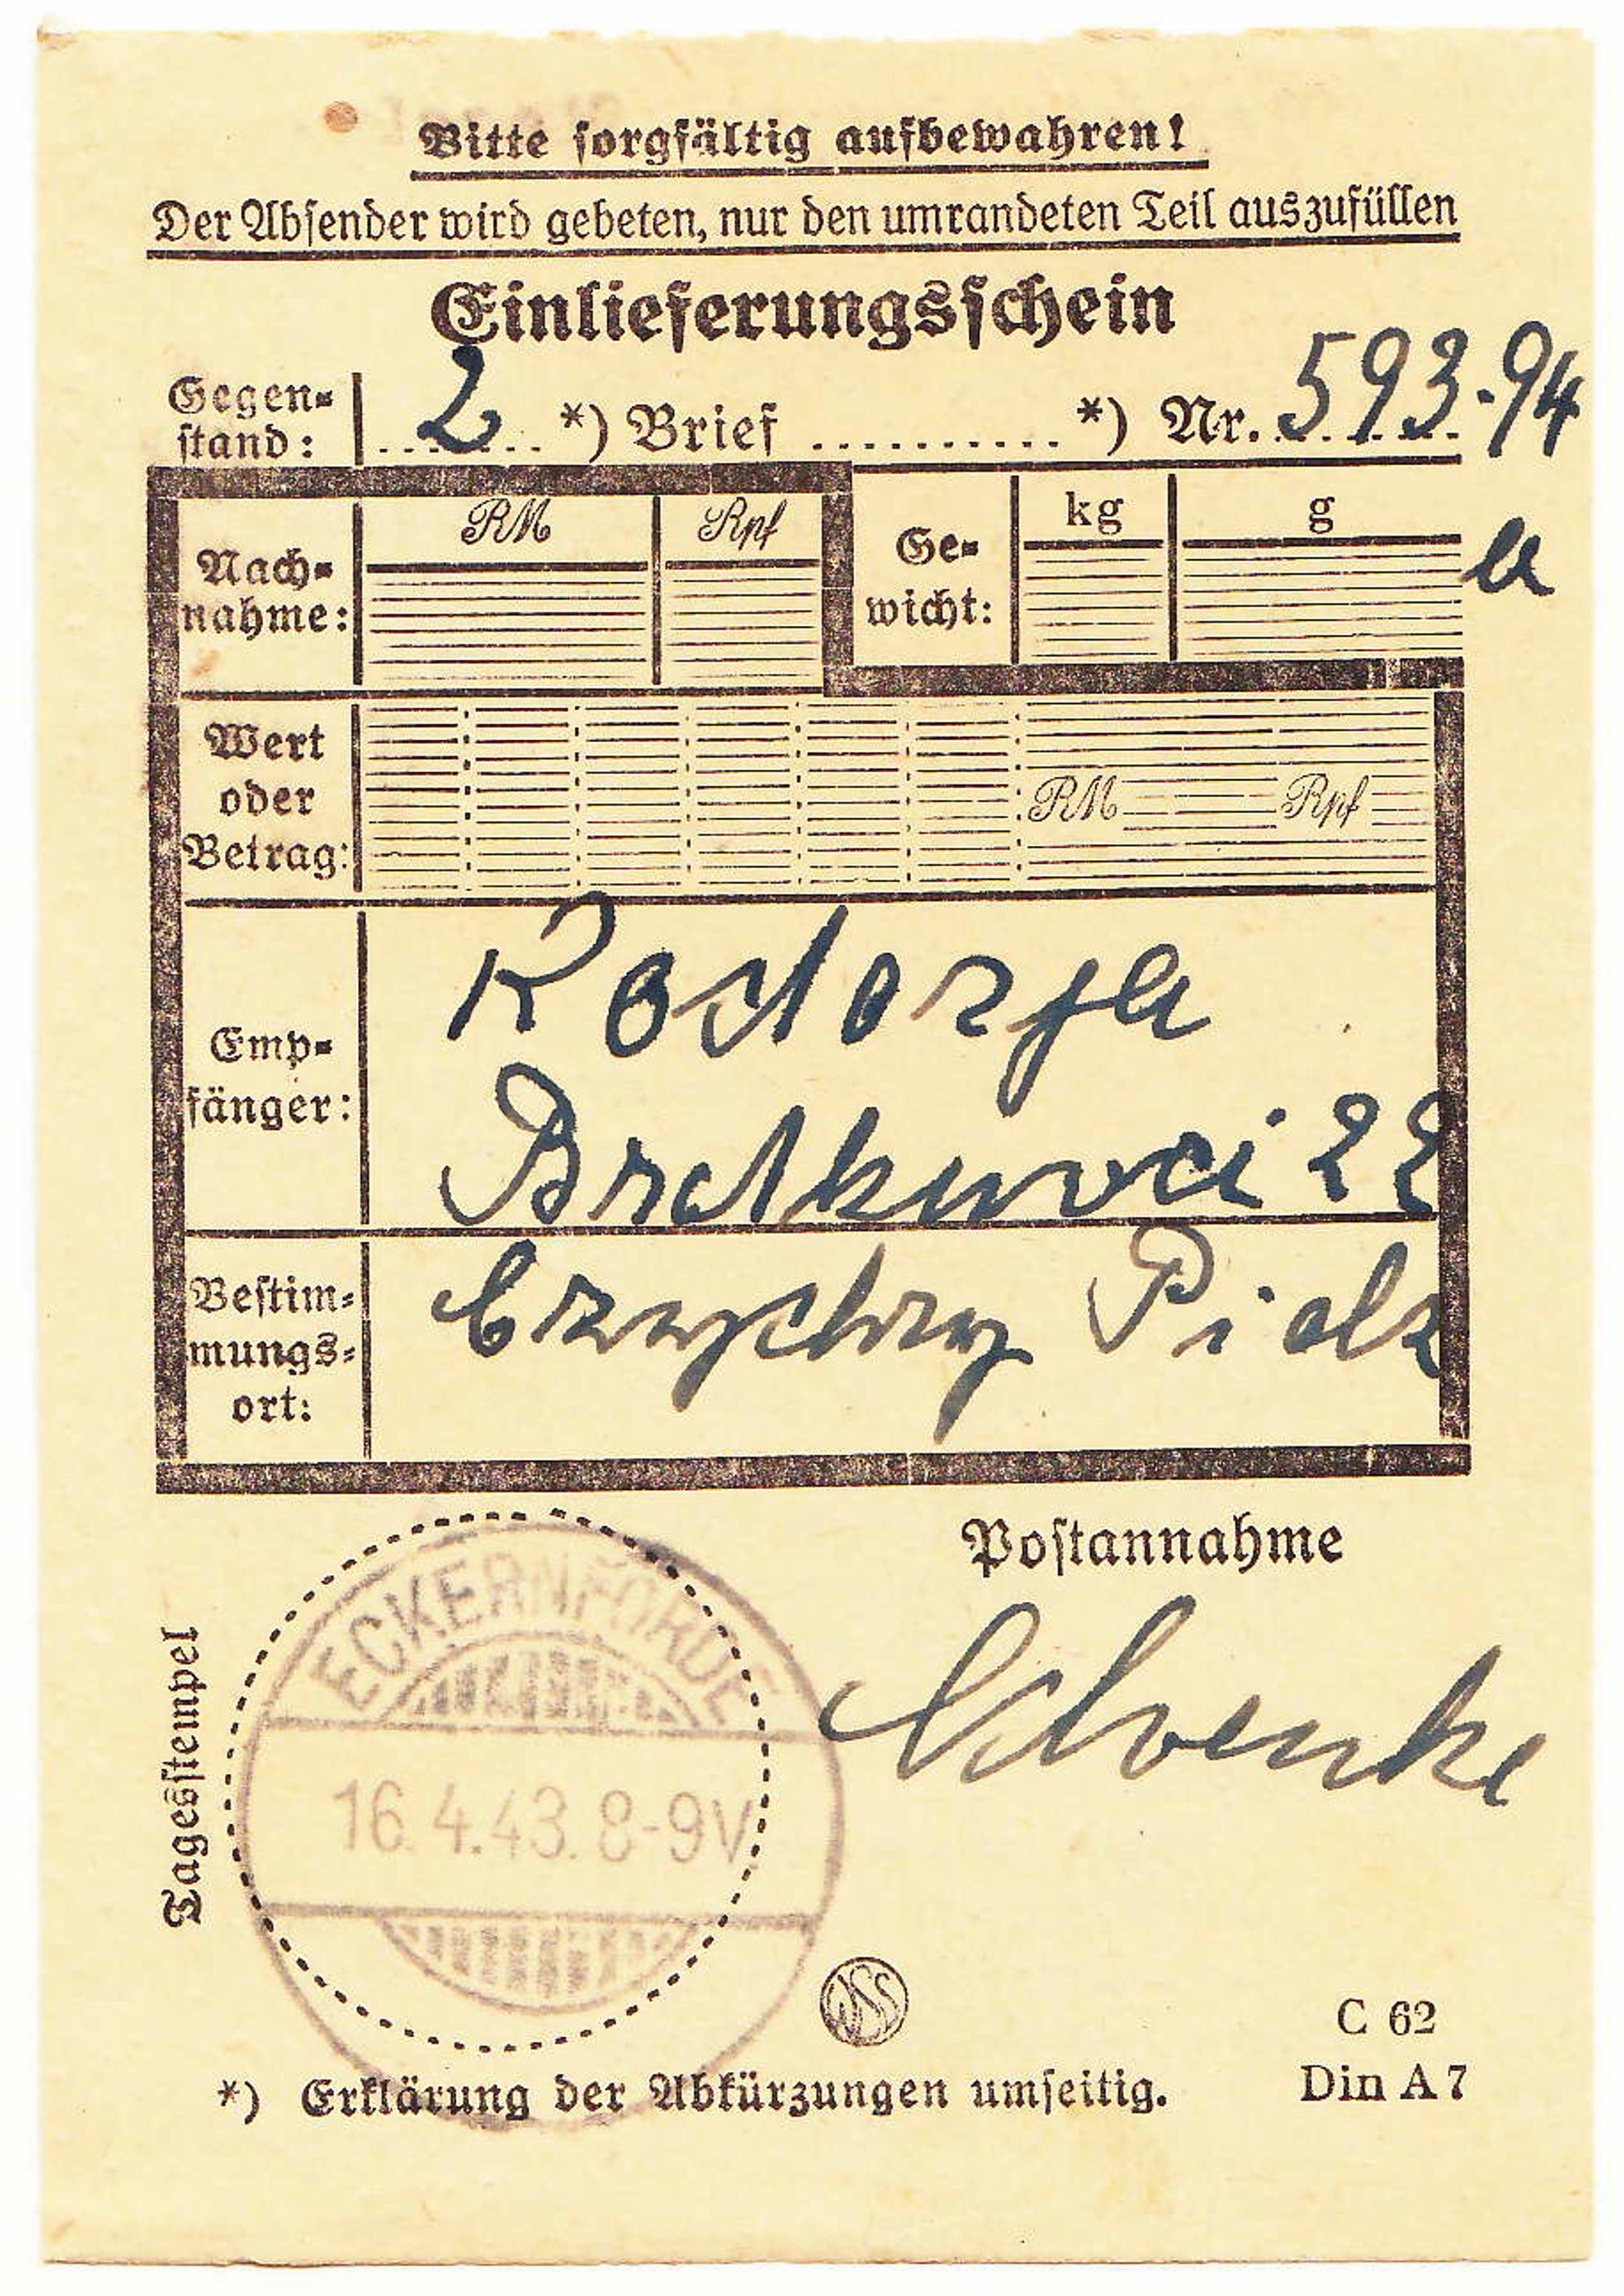 Bitte sorgfältig aufbewahren!
Der Absender wird gebeten, nur den umrandeten Teil auszufüllen
Einlieferungsschein
Gegen=
stand: 2 *) Brief .......... *) Nr. 593-94
Nach=
nahme: RM Rpf
Ge=
wicht: kg g
Wert
oder
Betrag: RM Rpf
Emp=
fänger:
22
Bestim=
mungs=
ort:
Postannahme
Tagesstempel
ECKERNFÖRDE
16.4.43.8-9V
C 62
Din A 7
*) Erklärung der Abkürzungen umseitig.